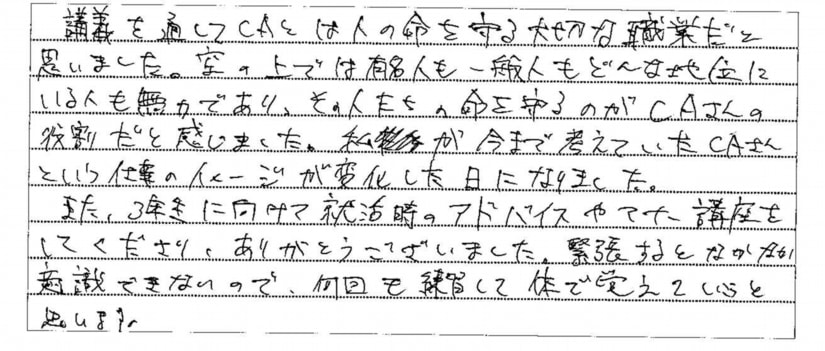 講義を通してCAとは人の命を守る大切な職業だと
思いました。空の上では有名人も一般人もどんな地位に
いる人も無力であり、その人たちの命を守るのがCAさんの
役割だと感じました。私が今まで考えていたCAさん
という仕事のイメージが変化した日になりました。
また、3年生に向けて就活時のアドバイスやマナー講座を
してくださり、ありがとうございました。緊張するとなかなか
意識できないので、何回も練習して体で覚えていこうと
思います。